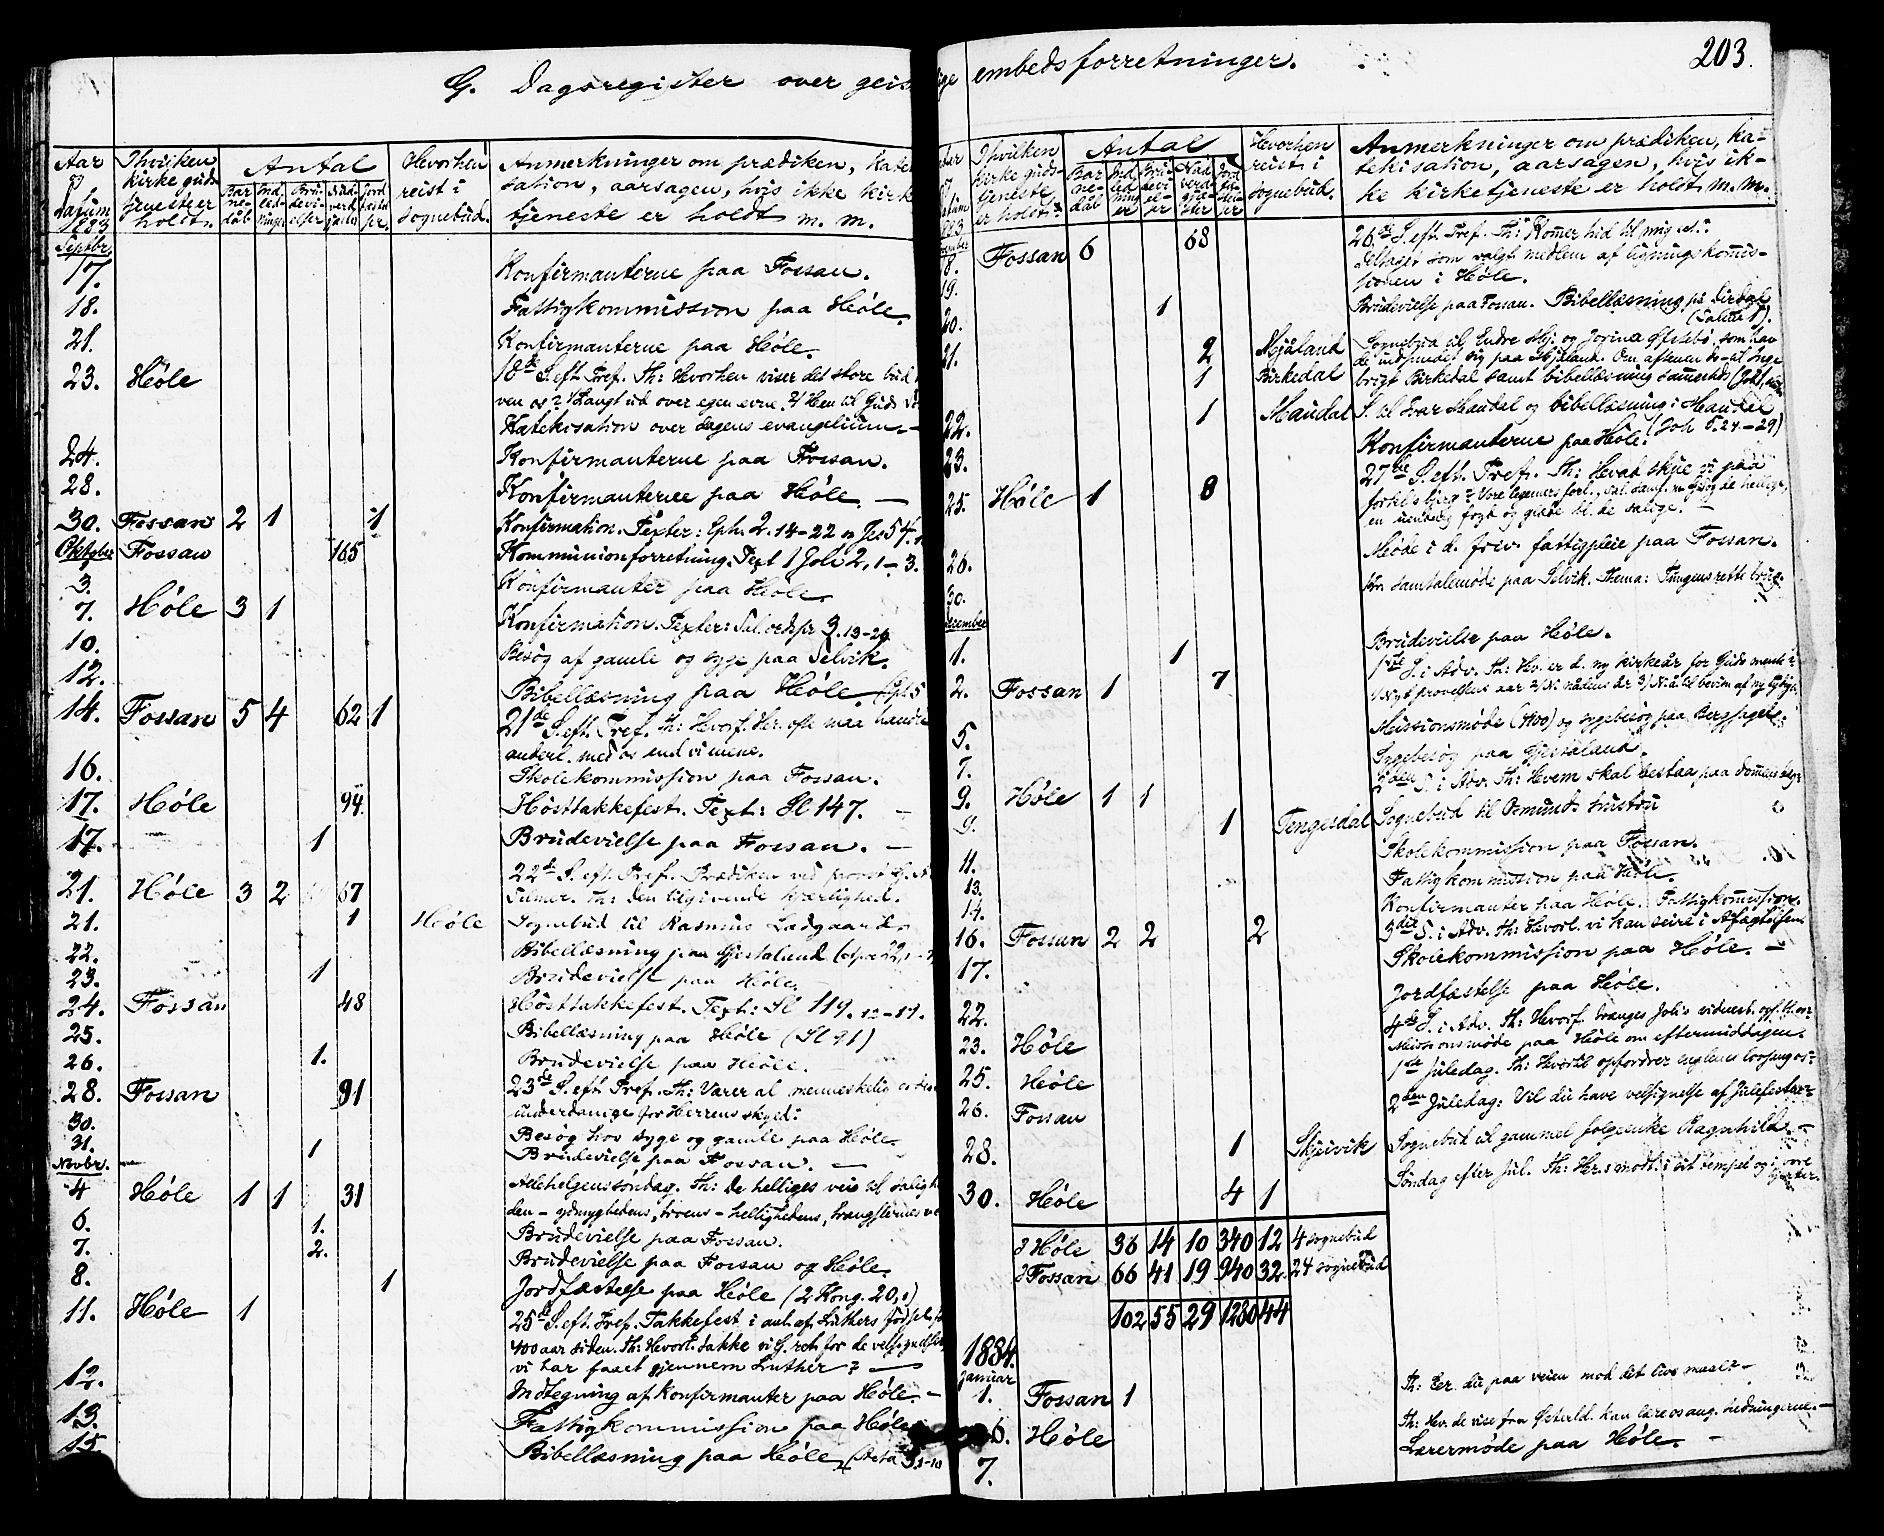 G. Dagsregister over geis
Aar og datum 1883
I hvilken kirke guds- tjeneste er holdt.
Antal
Bar- ne- daab
Ind- led- ninger
Bru- devi- elser
Nad- verd- gjester
Jord- fæstel- ser
Hvorhen reist i sognebud.
Anmerkninger om prædiken, kate-
sation, aarsagen, hvis ikke kirke
tjeneste er holdt m. m.
Septbr.
17. Konfirmanterne paa Fossan.
18. Fattigkommission paa Høle.
21. Konfirmanterne paa Høle.
23. Høle 18de S. eft. Tref. Th: Hvorhen viser det store bud
ven os? 1/ Langt ud over egen evne. 2/ Hen til Guds
Katekisation over dagens evangelium.
24. Konfirmanterne paa Fossan.
28. Konfirmanterne paa Høle. —
30. Fossan 2 1 1 Konfirmation. Texter: Eph. 2. 14-22 og Jes 54.
Oktober
3. Fossan 165 Kommunionforretning. Text 1 Joh 2, 1-3.
Konfirmanter paa Høle.
7. Høle 3 1 Konfirmation. Texter: Sal. ordspr 3. 13-26
10. Besøg af gamle og syge paa Selvik.
12. Bibellæsning paa Høle.
14. Fossan 5 4 62 1 21de S. eft. Tref. Th: Hvorf. Her. ofte maa handle
anderl. med os end vi mene.
16. Skolekommission paa Fossan.
17. Høle 94. Høsttakkefest. Text: Sl 147. —
17. 1 Brudevielse paa Fossan. —
21. Høle 3 2 67 22de S. eft. Tref. Prædiken ved provst
Th: den tilgivende kjærlighed.
21. 1 Høle Sognebud til Rasmus Ladgaard.
22. Bibellæsning paa Gjestaland
23. 1 Brudevielse paa Høle.
24. Fossan 48 Høsttakkefest. Text: Sl 119. 12-17.
25. Bibellæsning paa Høle (Sl 91)
26. 1. Brudevielse paa Høle.
28. Fossan 91 23de S. eft. Tref. Th: Værer al menneskelig orden
underdanige for Herrens skyld:
30. Besøg hos syge og gamle paa Høle.
31. 1 Brudevielse paa Fossan. —
Novbr.
4 Høle 1 1 31 Allehelgenssøndag. Th: De helliges vei til salighe
den – ydmyghedens, troens – hellighedens, trængslernes vei
6. 1. Brudevielse paa Fossan.
7. 2. Brudevielse paa Fossan og Høle.
8. 1 Jordfæstelse paa Høle (2 Kong. 20,1)
11. Høle 1 25de S. eft. Tref. Takkefest i anl. af Luthers fødsel for
400 aar siden. Th: Hvorl. takke vi G. ret for de velsignelser
vi har faaet gjennem Luther? —
12. Indtegning af konfirmanter paa Høle. —
13. Fattigkommission paa Høle
15. Bibellæsning paa Høle
ige embedsforretninger. 203.
I hvilken kirke guds- tjeneste er holdt.
Antal
Bar- ne- daab
Ind- led- ning- er
Bru- devi- el- ser
Nad- verd- gjæ- ster
Jord- fæ- stel- ser
Hvorhen reist i sognebud.
Anmerkninger om prædiken, ka-
tekisation, aarsagen, hvis ik-
ke kirketjeneste er holdt m. m.
18. Fossan 6 68 26de S. eft. Tref. Th: Kommer hid til mig
19. Deltaget som valgt medlem af ligningskommis-
sionen i Høle.
20. 1 Brudevielse paa Fossan. Bibellæsning på Dirdal
21. 2 Mjåland Sognebud til Endre Mj. og Jorina Øfstebø, som hav
de indfundet sig paa Mjaaland. Om aftenen
1 Birkedal Birkedal samt bibellæsning sammesteds
22. 1 Maudal S. til Ivar Maudal og bibellæsning i Maudal
(Joh 5. 24-29)
23. Konfirmanterne paa Høle.
25. Høle 1 8 27de S. eft. Tref. Th: Hvad skue vi paa
forkl. bjerg?
en uendelig fryd og glæde til de salige. —
26. Møde i d. friv. fattigpleie paa Fossan.
30. samtalemøde paa Selvik. Thema: Tungens rette brug.
December
1. 1 Brudevielse paa Høle.
2. Fossan 1 7 1ste S. i Adv. Th: Hv. er d. ny kirkeår for Guds menh:
5. Missionsmøde og sygebesøg paa Bergsagel.
7. Sygebesøg paa Gjestaland.
9. Høle 1 1 2den S. i Adv. Th: Hvem skal bestaa paa dommens dag?
9. 1 Tengesdal Sognebud til Osmunds hustru
11. Skolekommission paa Fossan.
13. Fattigkommission paa Høle.
14. Konfirmanter paa Høle. Fattigkommission.
16. Fossan 2 2 2 3die S. i Adv. Th: Hvorl. vi kan seire i
17. Skolekommission paa Høle. —
22. Jordfæstelse paa Høle.
23. Høle 4de S. i Adv. Th: Hvorf. trænges Joh's vidnesb.
Missionsmøde paa Høle om eftermiddagen.
25. Høle 1ste Juledag. Th: Hvortil opfordrer englenes lovsang os?
26. Fossan 2den Juledag: Vil du have velsignelse af julefesten?
28. 1 Skjeivik Sognebud til gammel folgeenke Ragnhild. —
30. Høle 4 1 Søndag efter Jul. Th: Her. modt. i sit tempel og i vore
hjerter.
Høle 36 14 10 340 12 4 sognebud
Fossan 66 41 19 940 32. 24 sognebud
102 55 29 1280 44
1884.
Januar
1. Fossan 1 Th: Er du paa veien mod det livs maal? —
6. Høle Th: Hv. de vise fra Østerld. kan lære os ang. hedningerne. —
7. Lærermøde paa Høle. —